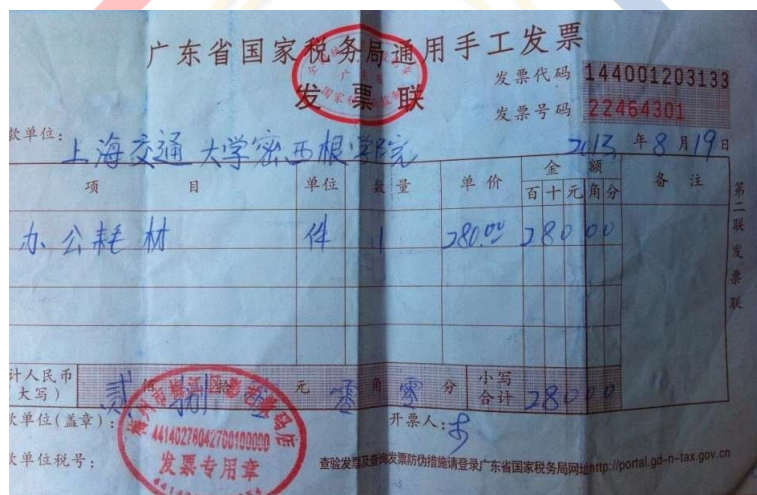 广东省国家税务局通用手工发票
发票联
发票代码 144001203133
发票号码 22464301
款单位: 上海交通大学密西根学院
2013 年 8 月 19 日
项 目 单位 数量 单价 金额 备注
百 十 元 角 分
办公耗材 件 1 280.00 2 8 0 0 0
第二联 发票联
计人民币(大写) 贰 佰 捌 拾 元 零 角 零 分 小写合计 2 8 0 0 0
款单位(盖章): 开票人:
44140276042700100000
发票专用章
款单位税号: 查验发票及查询发票防伪措施请登录广东省国家税务局网址http://portal.gd-n-tax.gov.cn